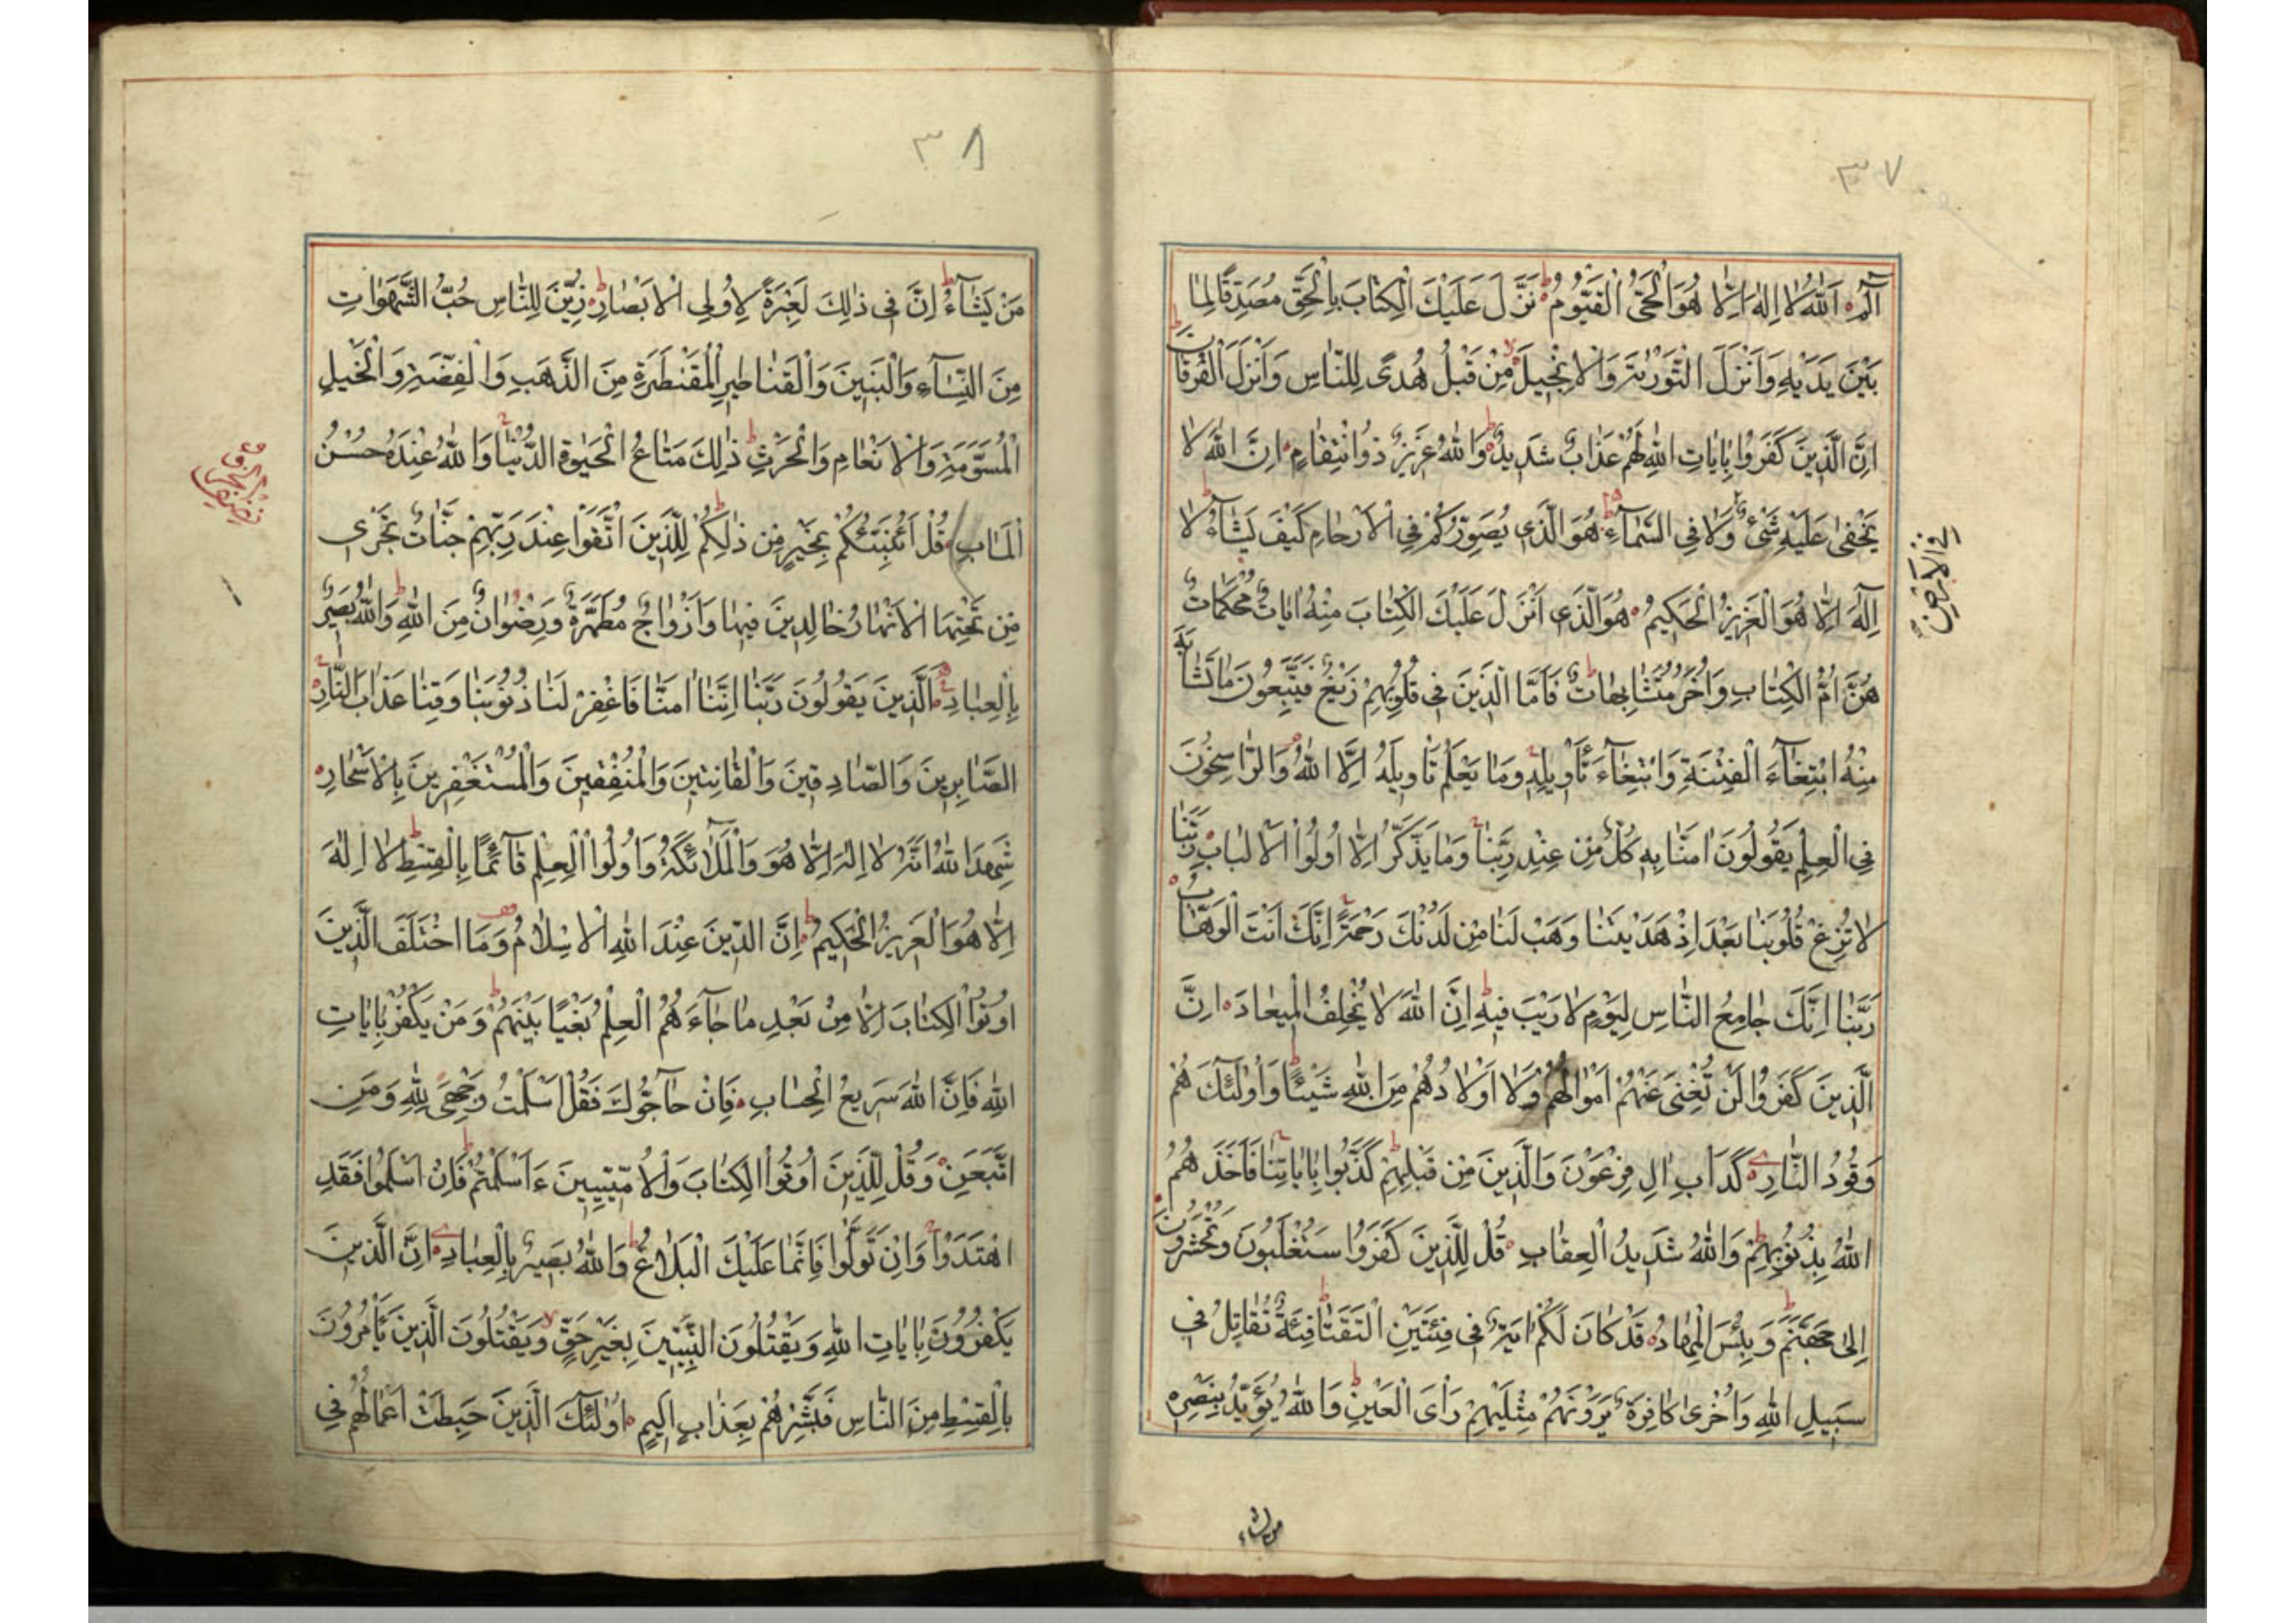 ٣٧
الٓمٓ ۝ اَللّٰهُ لَا اِلٰهَ اِلَّا هُوَ الْحَىُّ الْقَيُّومُ ۝ نَزَّلَ عَلَيْكَ الْكِتَابَ بِالْحَقِّ مُصَدِّقًا لِمَا
بَيْنَ يَدَيْهِ وَاَنْزَلَ التَّوْرٰيةَ وَالْاِنْجِيلَ مِنْ قَبْلُ هُدًى لِلنَّاسِ وَاَنْزَلَ الْفُرْقَانَ
اِنَّ الَّذِينَ كَفَرُوا بِاٰيَاتِ اللّٰهِ لَهُمْ عَذَابٌ شَدِيدٌ وَاللّٰهُ عَزِيزٌ ذُو انْتِقَامٍ ۝ اِنَّ اللّٰهَ لَا
يَخْفٰى عَلَيْهِ شَىْءٌ وَلَا فِى السَّمَآءِ ۝ هُوَ الَّذِى يُصَوِّرُكُمْ فِى الْاَرْحَامِ كَيْفَ يَشَآءُ لَا
فِى الْاَرْضِ
اِلٰهَ اِلَّا هُوَ الْعَزِيزُ الْحَكِيمُ ۝ هُوَ الَّذِى اَنْزَلَ عَلَيْكَ الْكِتَابَ مِنْهُ اٰيَاتٌ مُحْكَمَاتٌ
هُنَّ اُمُّ الْكِتَابِ وَاُخَرُ مُتَشَابِهَاتٌ فَاَمَّا الَّذِينَ فِى قُلُوبِهِمْ زَيْغٌ فَيَتَّبِعُونَ مَا تَشَابَهَ
مِنْهُ ابْتِغَآءَ الْفِتْنَةِ وَابْتِغَآءَ تَاْوِيلِهِ وَمَا يَعْلَمُ تَاْوِيلَهُ اِلَّا اللّٰهُ وَالرَّاسِخُونَ
فِى الْعِلْمِ يَقُولُونَ اٰمَنَّا بِهِ كُلٌّ مِنْ عِنْدِ رَبِّنَا وَمَا يَذَّكَّرُ اِلَّا اُولُوا الْاَلْبَابِ ۝ رَبَّنَا
لَا تُزِغْ قُلُوبَنَا بَعْدَ اِذْ هَدَيْتَنَا وَهَبْ لَنَا مِنْ لَدُنْكَ رَحْمَةً اِنَّكَ اَنْتَ الْوَهَّابُ ۝
رَبَّنَا اِنَّكَ جَامِعُ النَّاسِ لِيَوْمٍ لَا رَيْبَ فِيهِ اِنَّ اللّٰهَ لَا يُخْلِفُ الْمِيعَادَ ۝ اِنَّ
الَّذِينَ كَفَرُوا لَنْ تُغْنِىَ عَنْهُمْ اَمْوَالُهُمْ وَلَا اَوْلَادُهُمْ مِنَ اللّٰهِ شَيْئًا وَاُولٰئِكَ هُمْ
وَقُودُ النَّارِ ۝ كَدَاْبِ اٰلِ فِرْعَوْنَ وَالَّذِينَ مِنْ قَبْلِهِمْ كَذَّبُوا بِاٰيَاتِنَا فَاَخَذَهُمُ
اللّٰهُ بِذُنُوبِهِمْ وَاللّٰهُ شَدِيدُ الْعِقَابِ ۝ قُلْ لِلَّذِينَ كَفَرُوا سَتُغْلَبُونَ وَتُحْشَرُونَ
اِلٰى جَهَنَّمَ وَبِئْسَ الْمِهَادُ ۝ قَدْ كَانَ لَكُمْ اٰيَةٌ فِى فِئَتَيْنِ الْتَقَتَا فِئَةٌ تُقَاتِلُ فِى
سَبِيلِ اللّٰهِ وَاُخْرٰى كَافِرَةٌ يَرَوْنَهُمْ مِثْلَيْهِمْ رَاْىَ الْعَيْنِ وَاللّٰهُ يُؤَيِّدُ بِنَصْرِهِ
من يشاء
٣٨
مَنْ يَشَآءُ اِنَّ فِى ذٰلِكَ لَعِبْرَةً لِاُولِى الْاَبْصَارِ ۝ زُيِّنَ لِلنَّاسِ حُبُّ الشَّهَوَاتِ
مِنَ النِّسَآءِ وَالْبَنِينَ وَالْقَنَاطِيرِ الْمُقَنْطَرَةِ مِنَ الذَّهَبِ وَالْفِضَّةِ وَالْخَيْلِ
الْمُسَوَّمَةِ وَالْاَنْعَامِ وَالْحَرْثِ ذٰلِكَ مَتَاعُ الْحَيٰوةِ الدُّنْيَا وَاللّٰهُ عِنْدَهُ حُسْنُ
الْمَاٰبِ ۝ قُلْ اَؤُنَبِّئُكُمْ بِخَيْرٍ مِنْ ذٰلِكُمْ لِلَّذِينَ اتَّقَوْا عِنْدَ رَبِّهِمْ جَنَّاتٌ تَجْرِى
مِنْ تَحْتِهَا الْاَنْهَارُ خَالِدِينَ فِيهَا وَاَزْوَاجٌ مُطَهَّرَةٌ وَرِضْوَانٌ مِنَ اللّٰهِ وَاللّٰهُ بَصِيرٌ
بِالْعِبَادِ ۝ اَلَّذِينَ يَقُولُونَ رَبَّنَا اِنَّنَا اٰمَنَّا فَاغْفِرْ لَنَا ذُنُوبَنَا وَقِنَا عَذَابَ النَّارِ ۝
الصَّابِرِينَ وَالصَّادِقِينَ وَالْقَانِتِينَ وَالْمُنْفِقِينَ وَالْمُسْتَغْفِرِينَ بِالْاَسْحَارِ ۝
شَهِدَ اللّٰهُ اَنَّهُ لَا اِلٰهَ اِلَّا هُوَ وَالْمَلٰٓائِكَةُ وَاُولُوا الْعِلْمِ قَآئِمًا بِالْقِسْطِ لَا اِلٰهَ
اِلَّا هُوَ الْعَزِيزُ الْحَكِيمُ ۝ اِنَّ الدِّينَ عِنْدَ اللّٰهِ الْاِسْلَامُ وَمَا اخْتَلَفَ الَّذِينَ
اُوتُوا الْكِتَابَ اِلَّا مِنْ بَعْدِ مَا جَآءَهُمُ الْعِلْمُ بَغْيًا بَيْنَهُمْ وَمَنْ يَكْفُرْ بِاٰيَاتِ
اللّٰهِ فَاِنَّ اللّٰهَ سَرِيعُ الْحِسَابِ ۝ فَاِنْ حَآجُّوكَ فَقُلْ اَسْلَمْتُ وَجْهِىَ لِلّٰهِ وَمَنِ
اتَّبَعَنِ وَقُلْ لِلَّذِينَ اُوتُوا الْكِتَابَ وَالْاُمِّيِّينَ ءَاَسْلَمْتُمْ فَاِنْ اَسْلَمُوا فَقَدِ
اهْتَدَوْا وَاِنْ تَوَلَّوْا فَاِنَّمَا عَلَيْكَ الْبَلَاغُ وَاللّٰهُ بَصِيرٌ بِالْعِبَادِ ۝ اِنَّ الَّذِينَ
يَكْفُرُونَ بِاٰيَاتِ اللّٰهِ وَيَقْتُلُونَ النَّبِيِّينَ بِغَيْرِ حَقٍّ وَيَقْتُلُونَ الَّذِينَ يَاْمُرُونَ
بِالْقِسْطِ مِنَ النَّاسِ فَبَشِّرْهُمْ بِعَذَابٍ اَلِيمٍ ۝ اُولٰئِكَ الَّذِينَ حَبِطَتْ اَعْمَالُهُمْ فِى